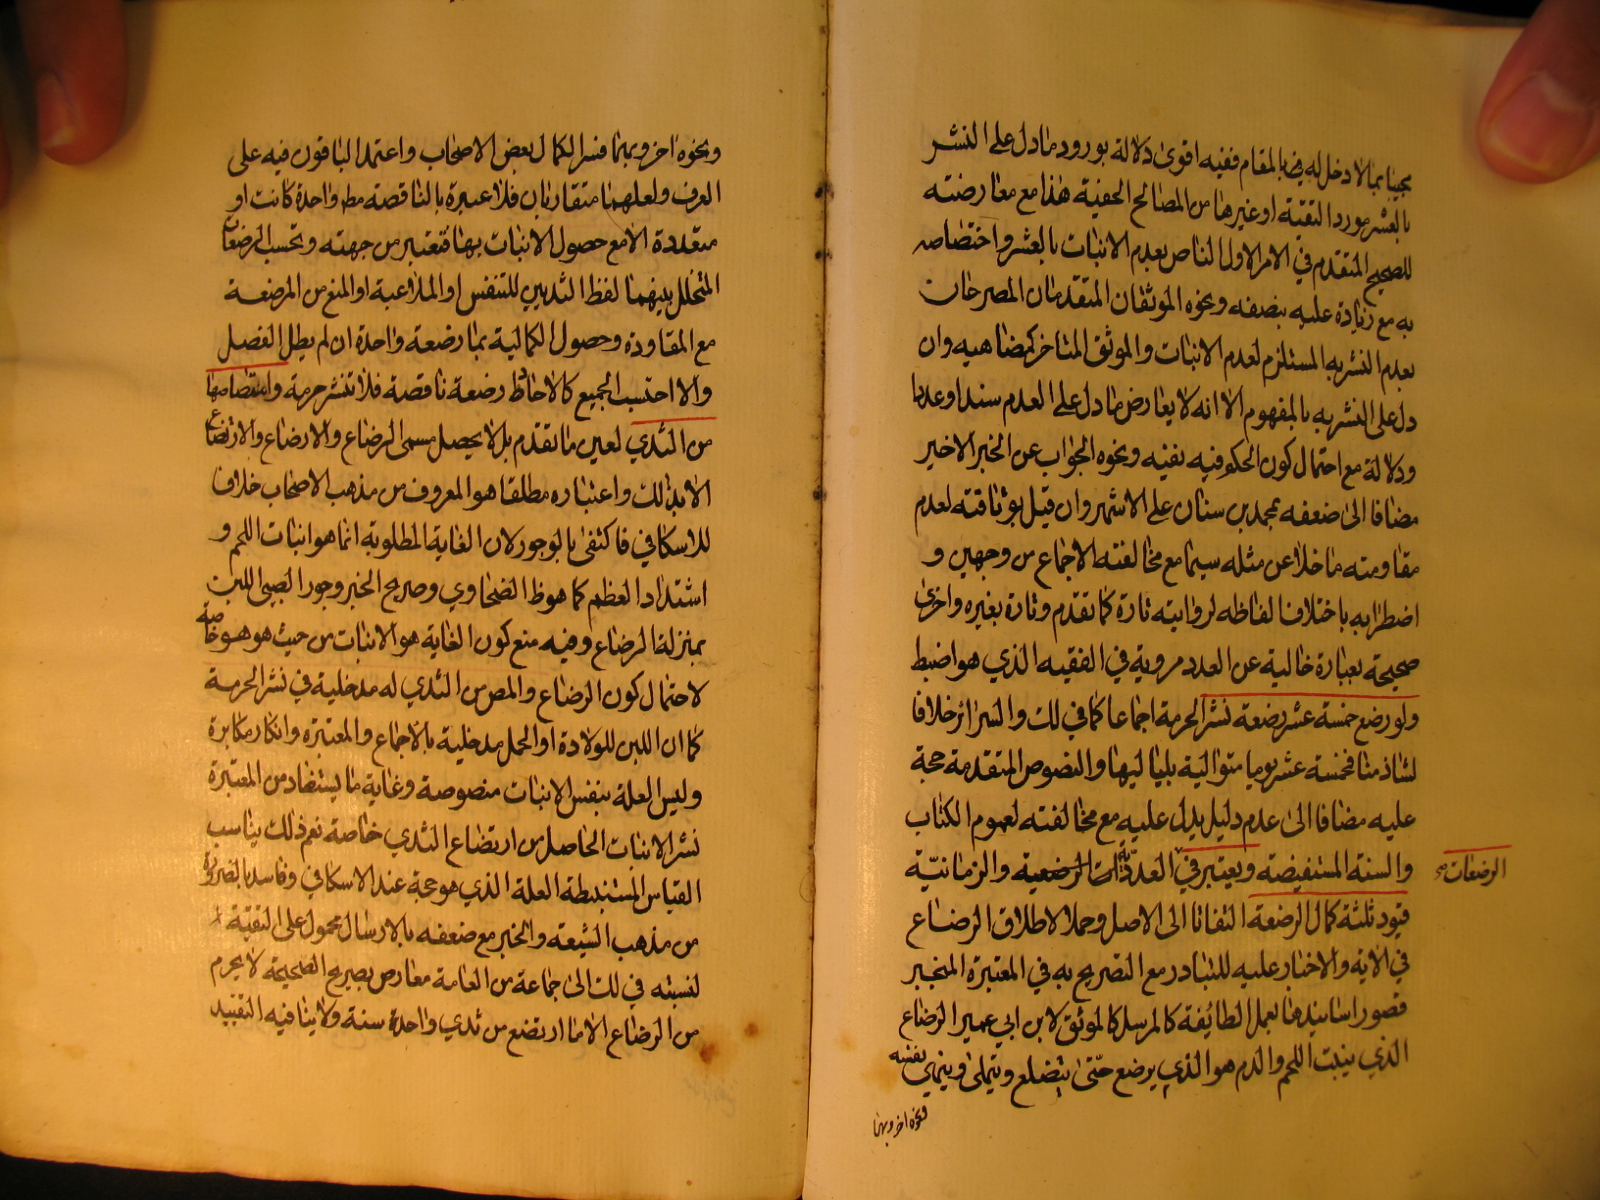 مجيبا بما لا دخل له يضا بالمقام ففيه اقوى دلالة بورود ما دل على النشر
بالعشر مورد التقية او غيرها من المصالح الخفية هذا مع معارضته
للصحيح المتقدم في الامر الاول الناص بعدم الانبات بالعشر واختصاصه
به مع زيادة عليه بضعفه ونحوه الموثقان المتقدمان المصرحان
بعدم النشر به المستلزم لعدم الانبات والموثق المتاخر كمضاهيه وان
دل على النشر به بالمفهوم الا انه لا يعارض ما دل على العدم سندا وعددا
ودلالة مع احتمال كون الحكم فيه تقية ونحوه الجواب عن الخبر الاخير
مضافا الى ضعفه بمحمد بن سنان على الاشهر وان قيل بوثاقته لعدم
مقاومته ما خلا عن مثله سيما مع مخالفته الاجماع من وجهين و
اضطرابه باختلاف الفاظه لروايته تارة كما تقدم وتارة بغيره واخرى
صحيحة بعبارة خالية عن العدد مروية في الفقيه الذي هو اضبط
ولو رضع خمسة عشر رضعة نشر الحرمة اجماعا كما في لك والسرائر خلافا
لشاذ منا فخمسة عشر يوما متوالية بلياليها والنصوص المتقدمة حجة
عليه مضافا الى عدم دليل يدل عليه مع مخالفته لعموم الكتاب
والسنة المستفيضة ويعتبر في العددية الرضعية والزمانية
الرضعات صح
قيود ثلثة كمال الرضعة التفاتا الى الاصل وحملا لاطلاق الرضاع
في الاية والاخبار عليه للتبادر مع التصريح به في المعتبرة المنجبر
قصور اسانيدها بعمل الطائفة كالمرسل كالموثق لابن ابي عمير الرضاع
الذي ينبت اللحم والدم هو الذي يرضع حتى يتضلع ويتملى وينتهي نفسه
ونحوه اخر وبهما
ونحوه اخر وبهما فسر الكمال بعض الاصحاب واعتمد الباقون فيه على
العرف ولعلهما متقاربان فلا عبرة بالناقصة مطـ واحدة كانت او
متعددة الا مع حصول الانبات بها فتعتبر من جهته وتحسب الرضعات
المتخلل بينهما لفظ الثديين للتنفس او الملاعبة او المنع من المرضعة
مع المقاودة وحصول الكمالية بها رضعة واحدة ان لم يطل الفصل
والا احتسب الجميع كالاحاد رضعة ناقصة فلا تنشر حرمة وامتصاصها
من الثدي لعين ما تقدم بل لا يحصل مسمى الرضاع والارضاع والارتضاع
الا بذلك واعتباره مطلقا هو المعروف من مذهب الاصحاب خلاف
للاسكافي فاكتفى بالوجور لان الغاية المطلوبة انما هو انبات اللحم و
اشتداد العظم كما هو ظ الفحاوي وصريح الخبر وجور الصبي اللبن
بمنزلة الرضاع وفيه منع كون الغاية هو الانبات من حيث هو هو خاصة
لاحتمال كون الرضاع والمص من الثدي له مدخلية في نشر الحرمة
كما ان اللبن للولادة او الحمل مدخلية بالاجماع والمعتبرة وانكاره مكابرة
وليس العلة بنفس الانبات منصوصة وغاية ما يستفاد من المعتبرة
نشر الانبات الحاصل من ارتضاع الثدي خاصة نعم ذلك يناسب
القياس المستنبطة العلة الذي هو حجة عند الاسكافي وفاسد بالضرورة
من مذهب الشيعة والخبر مع ضعفه بالارسال محمول على التقية
لنسبته في لك الى جماعة من العامة معارض بصريح الصحيحة لا يحرم
من الرضاع الا ما ارتضع من ثدي واحدة سنة ولا ينافيه التقييد